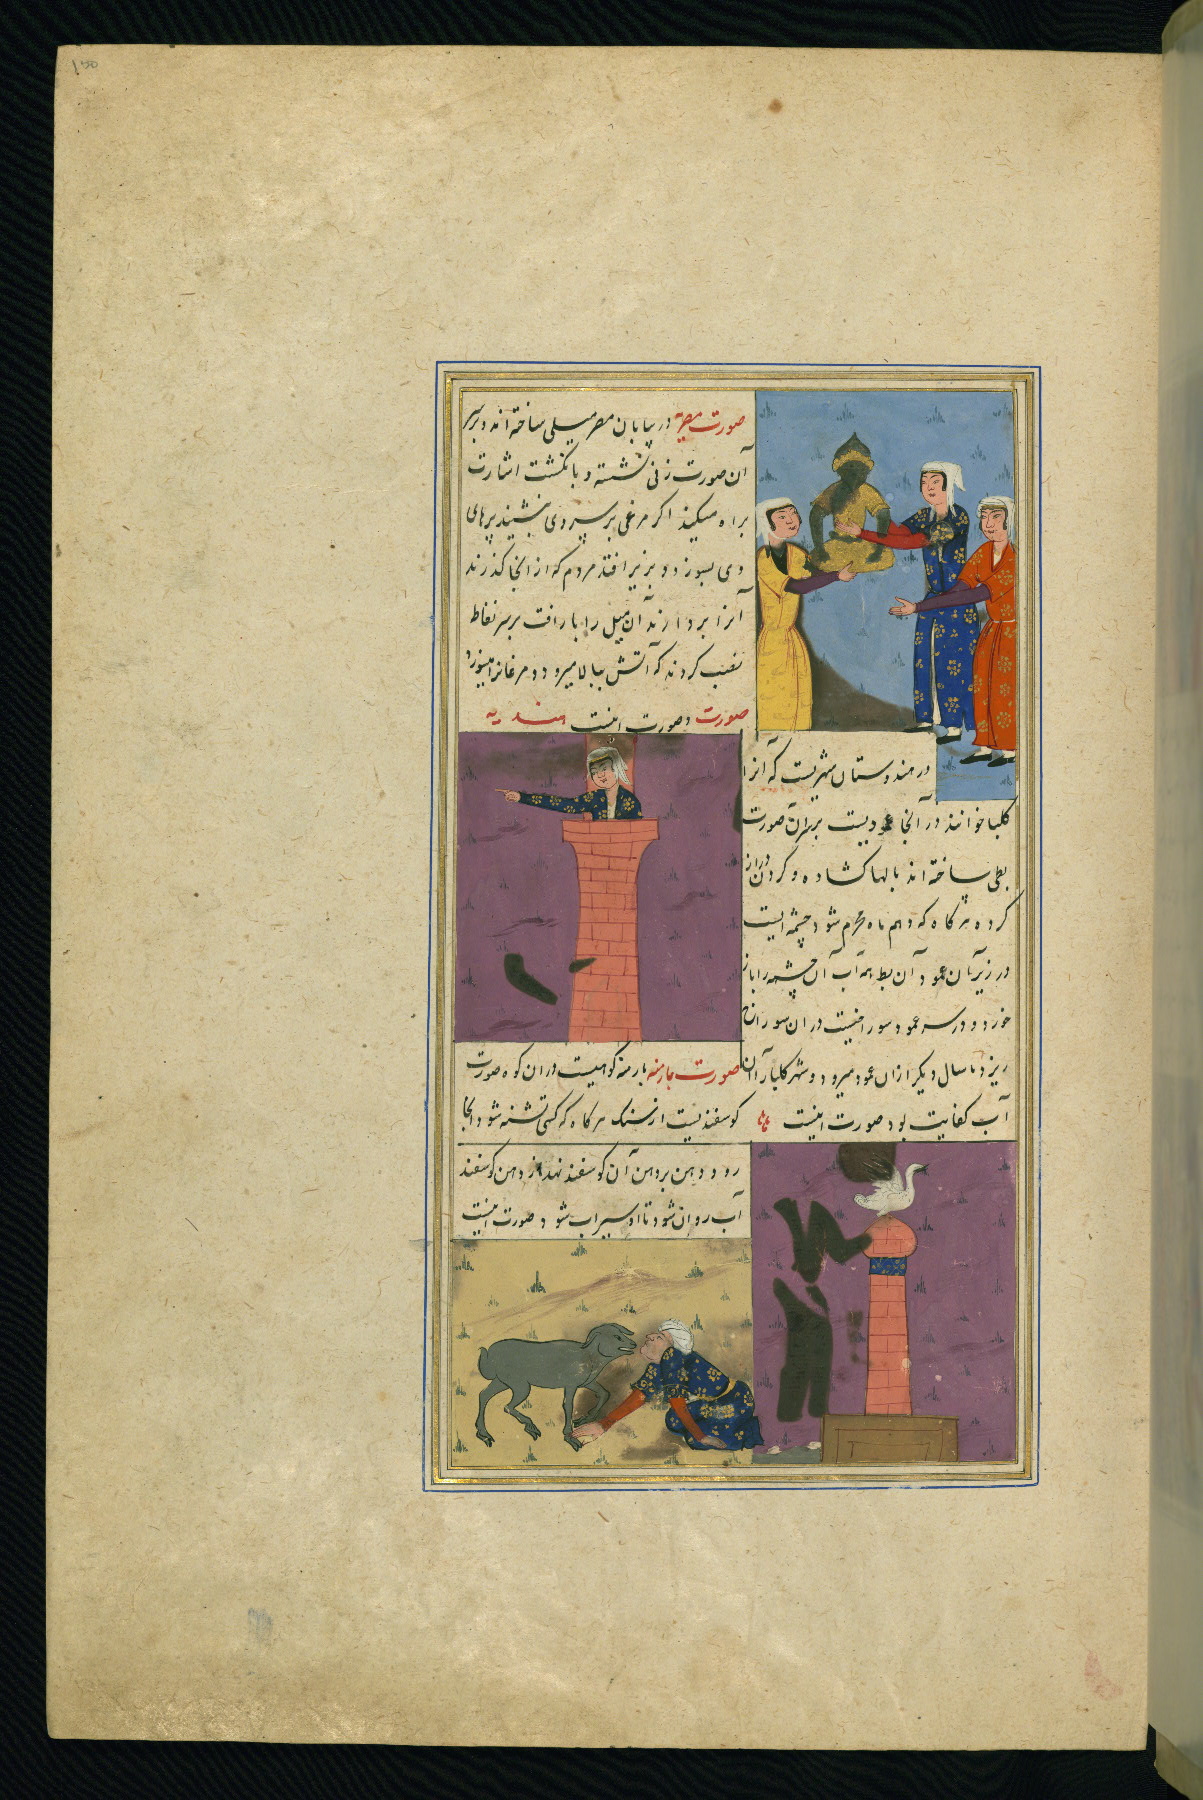 صورت مصریه در بیابان مصر میلی ساخته اند و بر سر
آن صورت زنی نشسته و بانگشت اشارت
براه میکند اگر مرغی بر سر وی نشیند پرهای
وی بسوزد و بزیر افتد مردم که از انجا گذرند
آنرا بردارند آن میل را بر سر نفاط
نصب کردند که آتش ببالا میرود و مرغانرا میسوزد
صورت هندیه و صورت اینست
در هندوستان شهریست که آنرا
کلبا خوانند در آنجا عمودیست بر سر آن صورت
بطی ساخته اند بالها کشاده و گردن دراز
کرده هر گاه که دهم ماه محرم شود چشمه ایست
در زیر آن عمود آن بط همه آب آن چشمه را باز
خورد و در سر عمود سوراخیست در ان سوراخ
ریزد تا سال دیگر از ان عمود میرود و شهر کلبا را آن
آب کفایت بود صورت اینست
صورت بارمنه بارمنه کوهیست در ان کوه صورت
گوسفندیست از سنگ هر گاه که کسی تشنه شود آنجا
رود و دهن بر دهن آن گوسفند نهد از دهن گوسفند
آب روان شود تا او سیراب شود صورت اینست